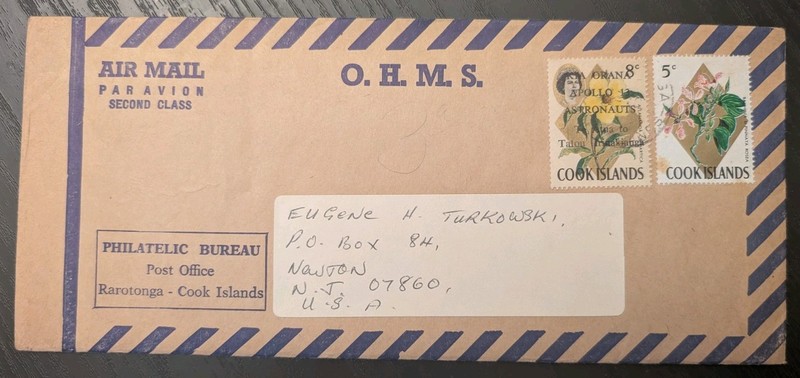 AIR MAIL
PAR AVION
SECOND CLASS
O. H. M. S.
8c
KIA ORANA
APOLLO 13
ASTRONAUTS
Te Atua to
Tatou Irinakianga
COOK ISLANDS
5c
COOK ISLANDS
EUGENE H. TURKOWSKI,
P.O. BOX 84,
NEWTON
N.J. 07860,
U.S.A.
PHILATELIC BUREAU
Post Office
Rarotonga - Cook Islands